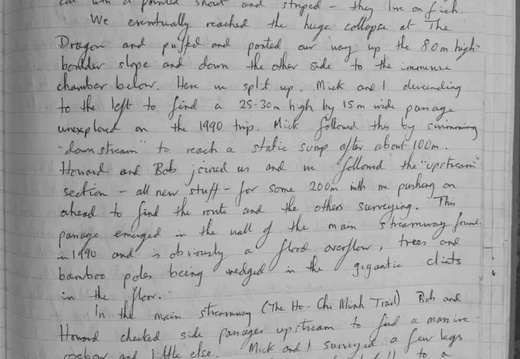 with a pointed snout and striped – they live on fish.
We eventually reached the huge collapse at The
Dragon and puffed and panted our way up the 80m high
boulder slope and down the other side to the immense
chamber below. Here we split up, Mick and I descending
to the left to find a 25-30m high by 15m wide passage
unexplored on the 1990 trip. Mick followed this by swimming
"downstream" to reach a static sump after about 100m.
Howard and Bob joined us and we followed the "upstream"
section – all new stuff – for some 200m with me pushing on
ahead to find the route and the others surveying. This
passage emerged in the wall of the main streamway found
in 1990 and is obviously a flood overflow, trees and
bamboo poles being wedged in the gigantic clints
in the floor.
In the main streamway (The Ho-Chi Minh Trail) Bob and
Howard checked side passages upstream to find a massive
oxbow and little else. Mick and I surveyed a few legs
to a